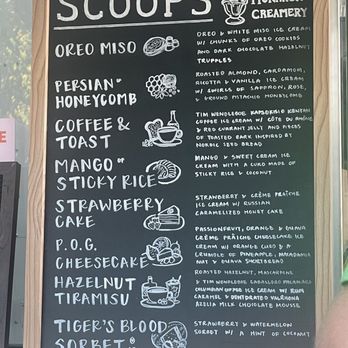 SCOOPS
CREAMERY
OREO MISO
OREO & WHITE MISO ICE CREAM
W/ CHUNKS OF OREO COOKIES
AND DARK CHOCOLATE HAZELNUT
TRUFFLES
PERSIAN
HONEYCOMB
ROASTED ALMOND, CARDAMOM,
RICOTTA & VANILLA ICE CREAM
W/ SWIRLS OF SAFFRON, ROSE,
& GROUND PISTACHIO HONEYCOMB
COFFEE &
TOAST
TIM WENDELBOE KAPSOKISIO KENYAN
COFFEE ICE CREAM W/ CÔTE DU
& RED CURRANT JELLY AND PIECES
OF TOASTED BARK INSPIRED BY
NORDIC SEED BREAD
MANGO
STICKY RICE
MANGO & SWEET CREAM ICE
CREAM WITH A CURD MADE OF
STICKY RICE & COCONUT
STRAWBERRY
CAKE
STRAWBERRY & CRÈME FRAÎCHE
ICE CREAM W/ RUSSIAN
CARAMELIZED HONEY CAKE
P.O.G.
CHEESECAKE
PASSIONFRUIT, ORANGE & GUAVA
CRÈME FRAÎCHE CHEESECAKE ICE
CREAM W/ ORANGE CURD & A
CRUMBLE OF PINEAPPLE, MACADAMIA
NUT & GUAVA SHORTBREAD
HAZELNUT
TIRAMISU
ROASTED HAZELNUT, MASCARPONE
& TIM WENDELBOE CABALLERO
COFFEE ICE CREAM W/ RUM
CARAMEL & DEHYDRATED VALRHONA
AZELIA MILK CHOCOLATE MOUSSE
TIGER'S BLOOD
SORBET
STRAWBERRY & WATERMELON
SORBET W/ A HINT OF COCONUT